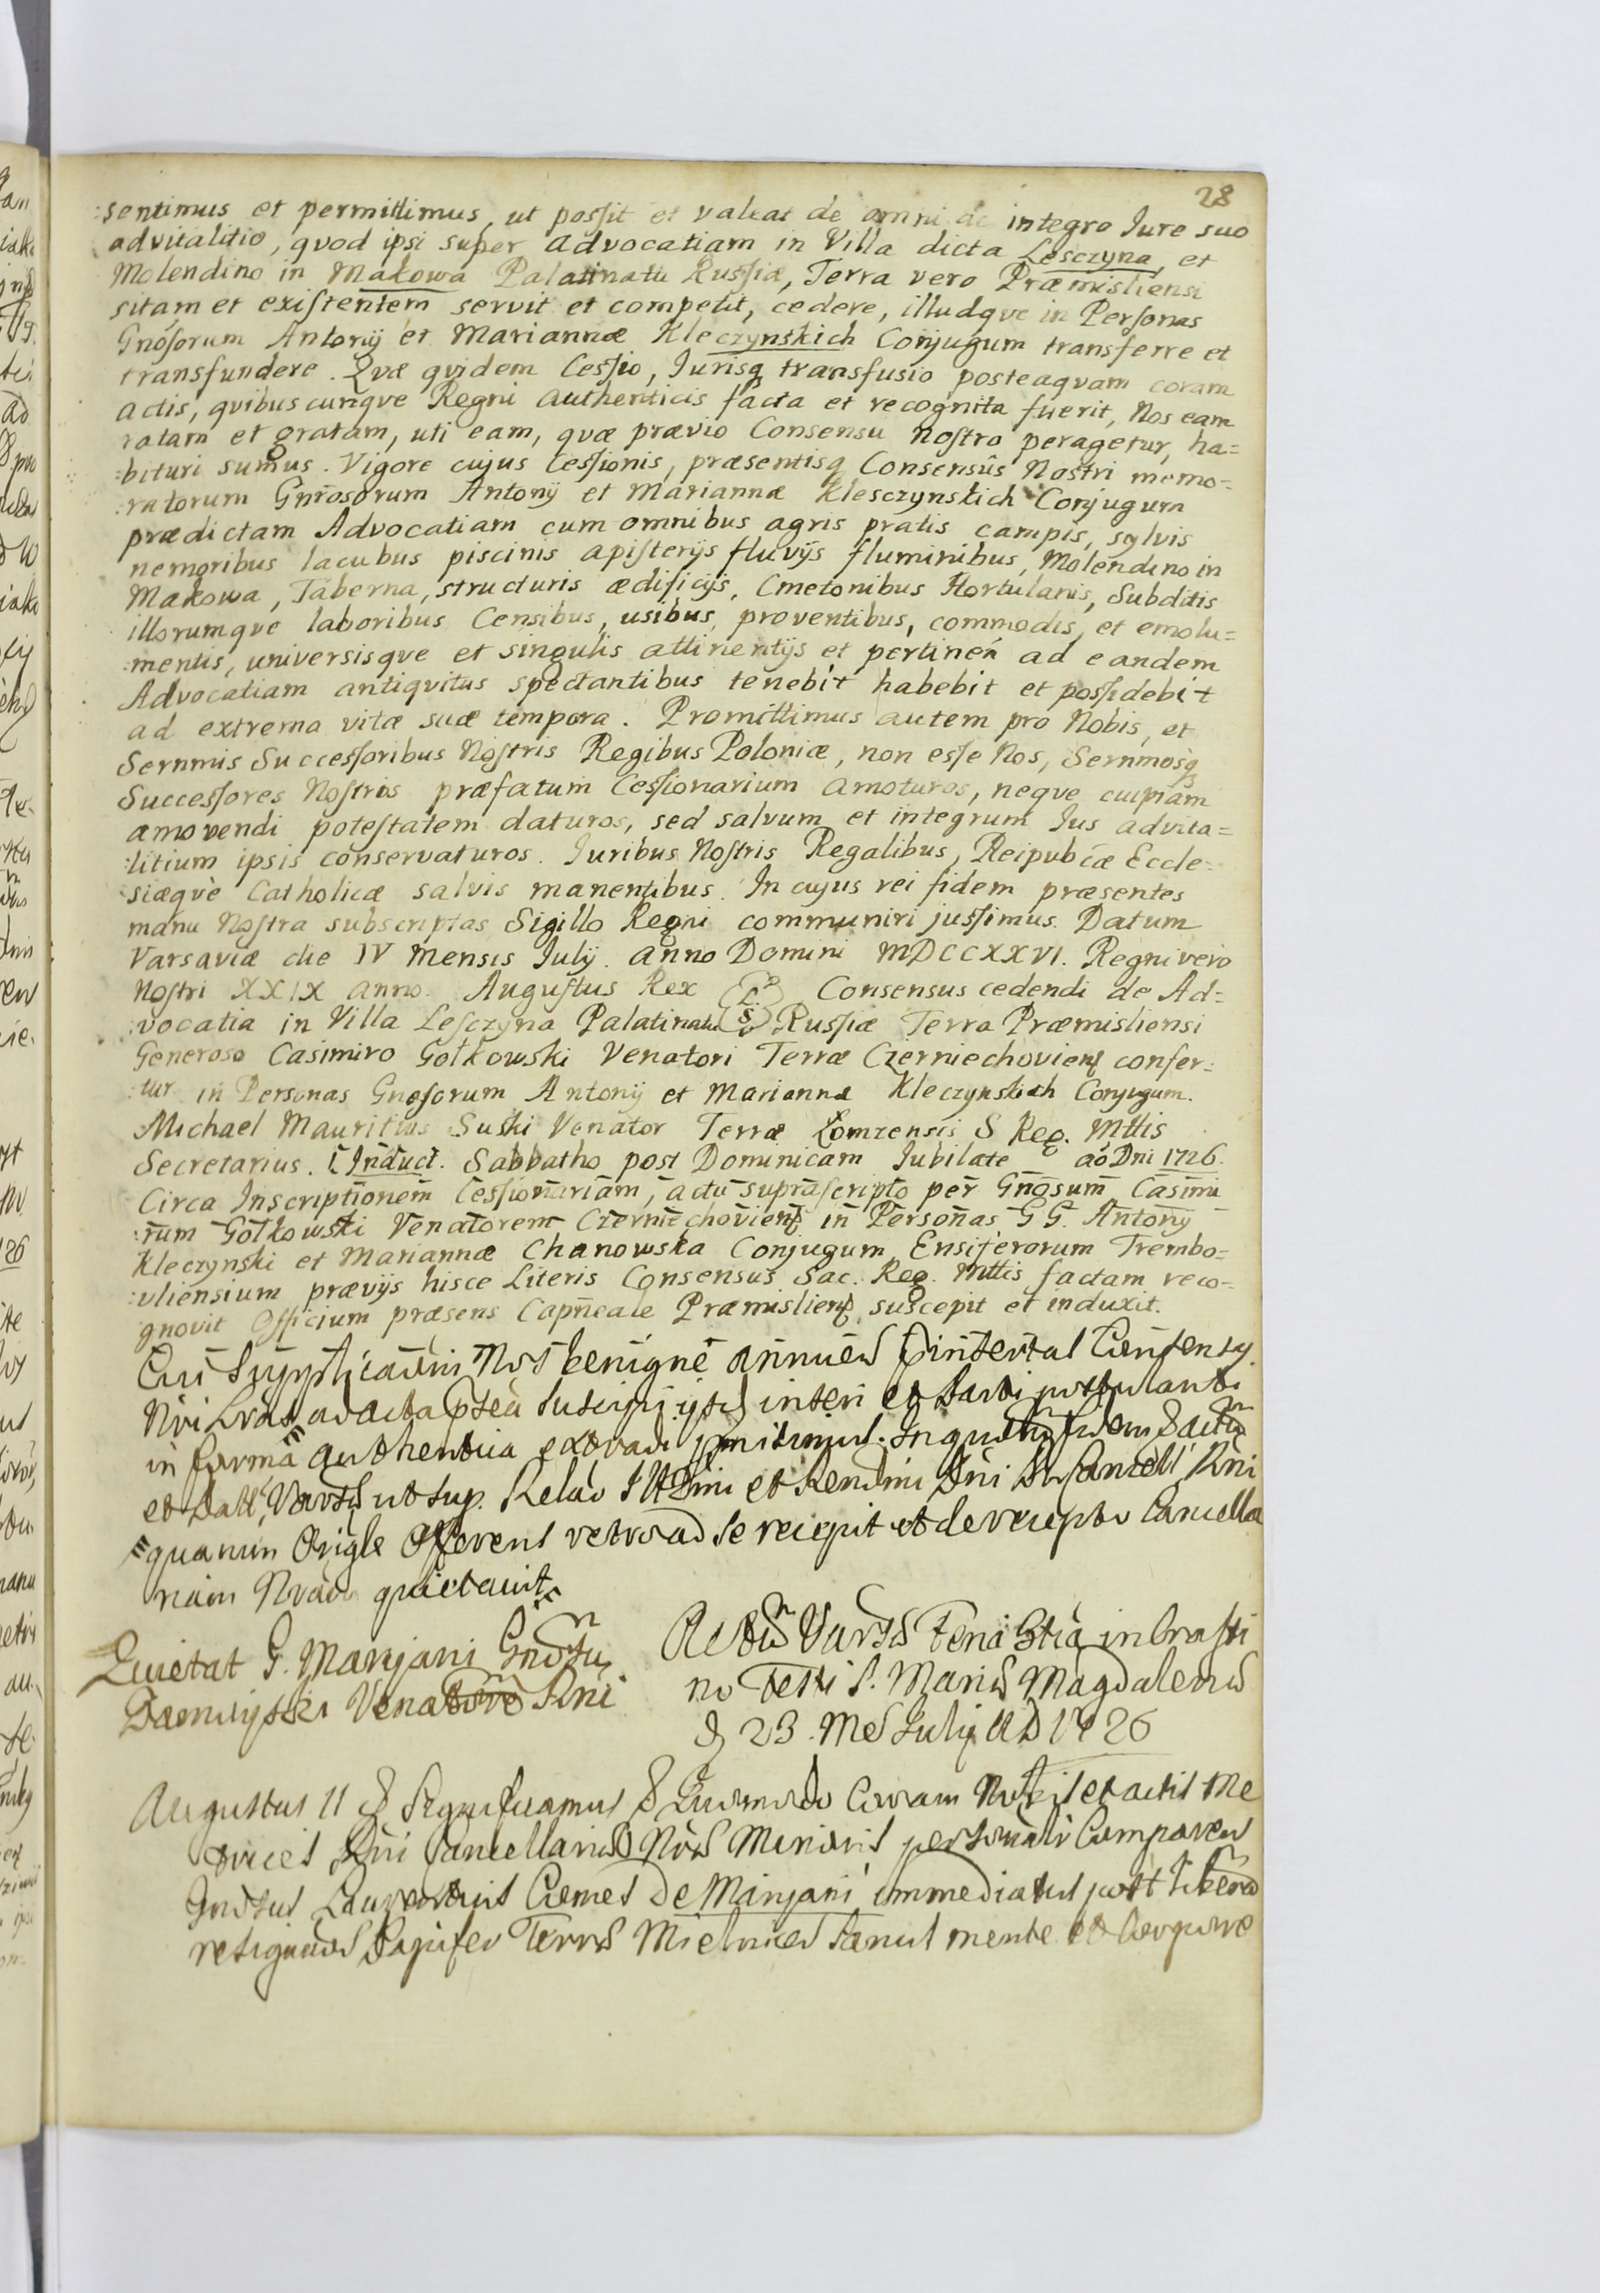 28
:sentimus et permittimus, ut possit et valeat de omni ac integro Iure suo
advitalitio, quod ipsi super advocatiam in Villa dicta Lesczyna, et
Molendino in Makowa Palatinatu Russiæ, Terra vero Præmisliensi
sitam et existentem servit et competit, cedere, illudqve in Personas
Gnosorum Antonij et Mariannæ Kleczynskich Conjugum transferre et
transfundere. Qvæ qvidem Cessio, Iurisq transfusio posteaqvam coram
actis, qvibuscunqve Regni authenticis facta et recognita fuerit, Nos eam
ratam et gratam, uti eam, quæ prævio Consensu Nostro peragetur, ha=
:bituri sumus. Vigore cujus Cessionis, præsentisq Consensûs Nostri memo=
:ratorum Gnrosorum Antonij et Mariannæ Klesczynskich Conjugum
prædictam Advocatiam cum omnibus agris pratis campis, sylvis
nemoribus lacubus piscinis apisterijs fluvijs fluminibus, Molendino in
Makowa, Taberna, structuris ædificijs, Cmetonibus Hortulanis, Subditis
illorumqve laboribus Censibus, usibus, proventibus, commodis, et emolu=
:mentis, universisqve et singulis attinentijs et pertineñ ad eandem
Advocatiam antiqvitus spectantibus tenebit habebit et possidebit
ad extrema vitæ suæ tempora. Promittimus autem pro Nobis, et
Sernmis Successoribus Nostris Regibus Poloniæ, non esse Nos, Sernmosq
Successores Nostros præfatum Cessionarium amoturos, neqve cuipiam
amovendi potestatem daturos, sed salvum et integrum Ius advita=
:litium ipsis conservaturos. Iuribus Nostris Regalibus, Reipubcæ Eccle=
:siæqvè Catholicæ salvis manentibus. In cujus rei fidem præsentes
manu Nostra subscriptas Sigillo Regni communiri jussimus. Datum
Varsaviæ die IV Mensis Iulij. anno Domini MDCCXXVI. Regni vero
Nostri XXIX anno. Augustus Rex L. S. Consensus cedendi de Ad=
:vocatia in Villa Lesczyna Palatinatu Russiæ Terra Præmisliensi
Generoso Casimiro Gołkowski Venatori Terræ Czerniechovien confer=
:tur in Personas Gnosorum Antonij et Mariannæ Kleczynskich Conjugum.
Michael Mauritius Suski Venator Terræ Łomzensis S Reg. Mttis
Secretarius. Induct. Sabbatho post Dominicam Iubilate aõ Dni 1726.
Circa Inscriptionem Cessionariam, actu suprascripto per Gnosum Casimi
:rum Gołkowski Venatorem Czerniechovien in Personas G G. Antony
Kleczynski et Mariannæ Chanowska Conjugum, Ensiferorum Trembo=
:vliensium prævijs hisce Literis Consensus Sac. Reg. Mttis factam reco=
gnovit Officium præsens Capneale Præmislien, suscepit et induxit.
Cui Supplicaõni Nos benignè annuen insertas Consensy
Nri ad acta suscipi inseri et parti postulanti
in forma authentica extradi
et Datt, ut sup. Relãõ
quarum Origle Offerens retro ad se recepit et de recepto Cancella
riam Nram quietavit
Quietat G. Marjani
Venatore Rni
in Crasti
no Festi S. Mariæ Magdalenæ
23. Mes Julij AD 1726
Augustus II Significamus Quomodo Coram Nobis et actis Me
trices Rni Cancellariæ Nræ Minoris personalr Comparen
Gnosus Comes De Marjani immediatus post
resignaõ Dapifer Terræ Mielnicen Sanus mente et Corpore